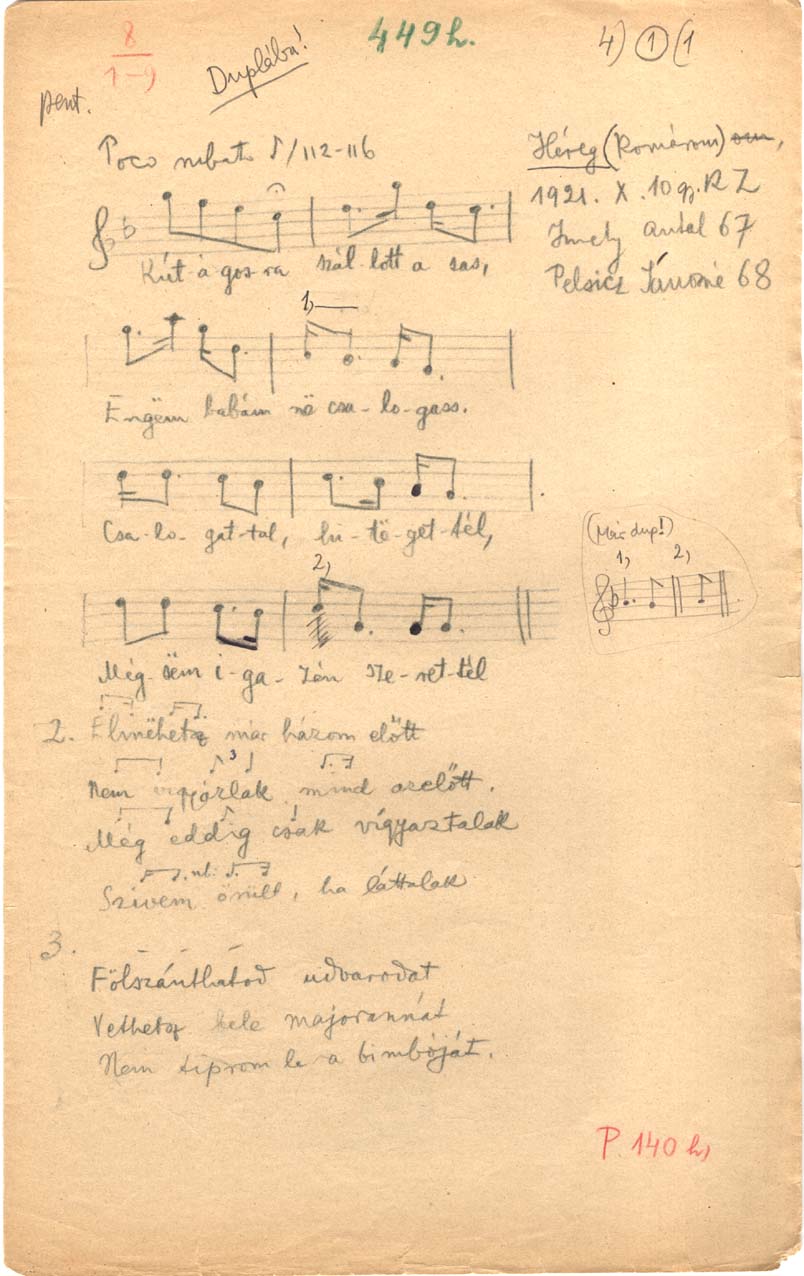 8
1-9
Duplába!
449h.
4) 1 (1
pent.
Poco rubato ♪/112-116
Héreg (Komárom)
1921. X. 10 gy. R Z
Imely Antal 67
Pelsicz Jánosné 68
Kút-á-gos-ra szál-lott a sas,
1,
Engëm babám në csa-lo-gass.
Csa-lo-gat-tál, hi-të-get-tél,
2,
Még-sëm i-ga-zán sze-ret-tél
(Már dup!)
1, 2,
2. Elmëhetsz már három előtt
Nem vigyázlak mind azelőtt.
3
Még eddig csak vígyaztalak
Szivem örült, ha láttalak
3.
Fölszánthatod udvarodat
Vethetsz bele majorannát
Nem tiprom le a bimbóját.
P. 140 h,